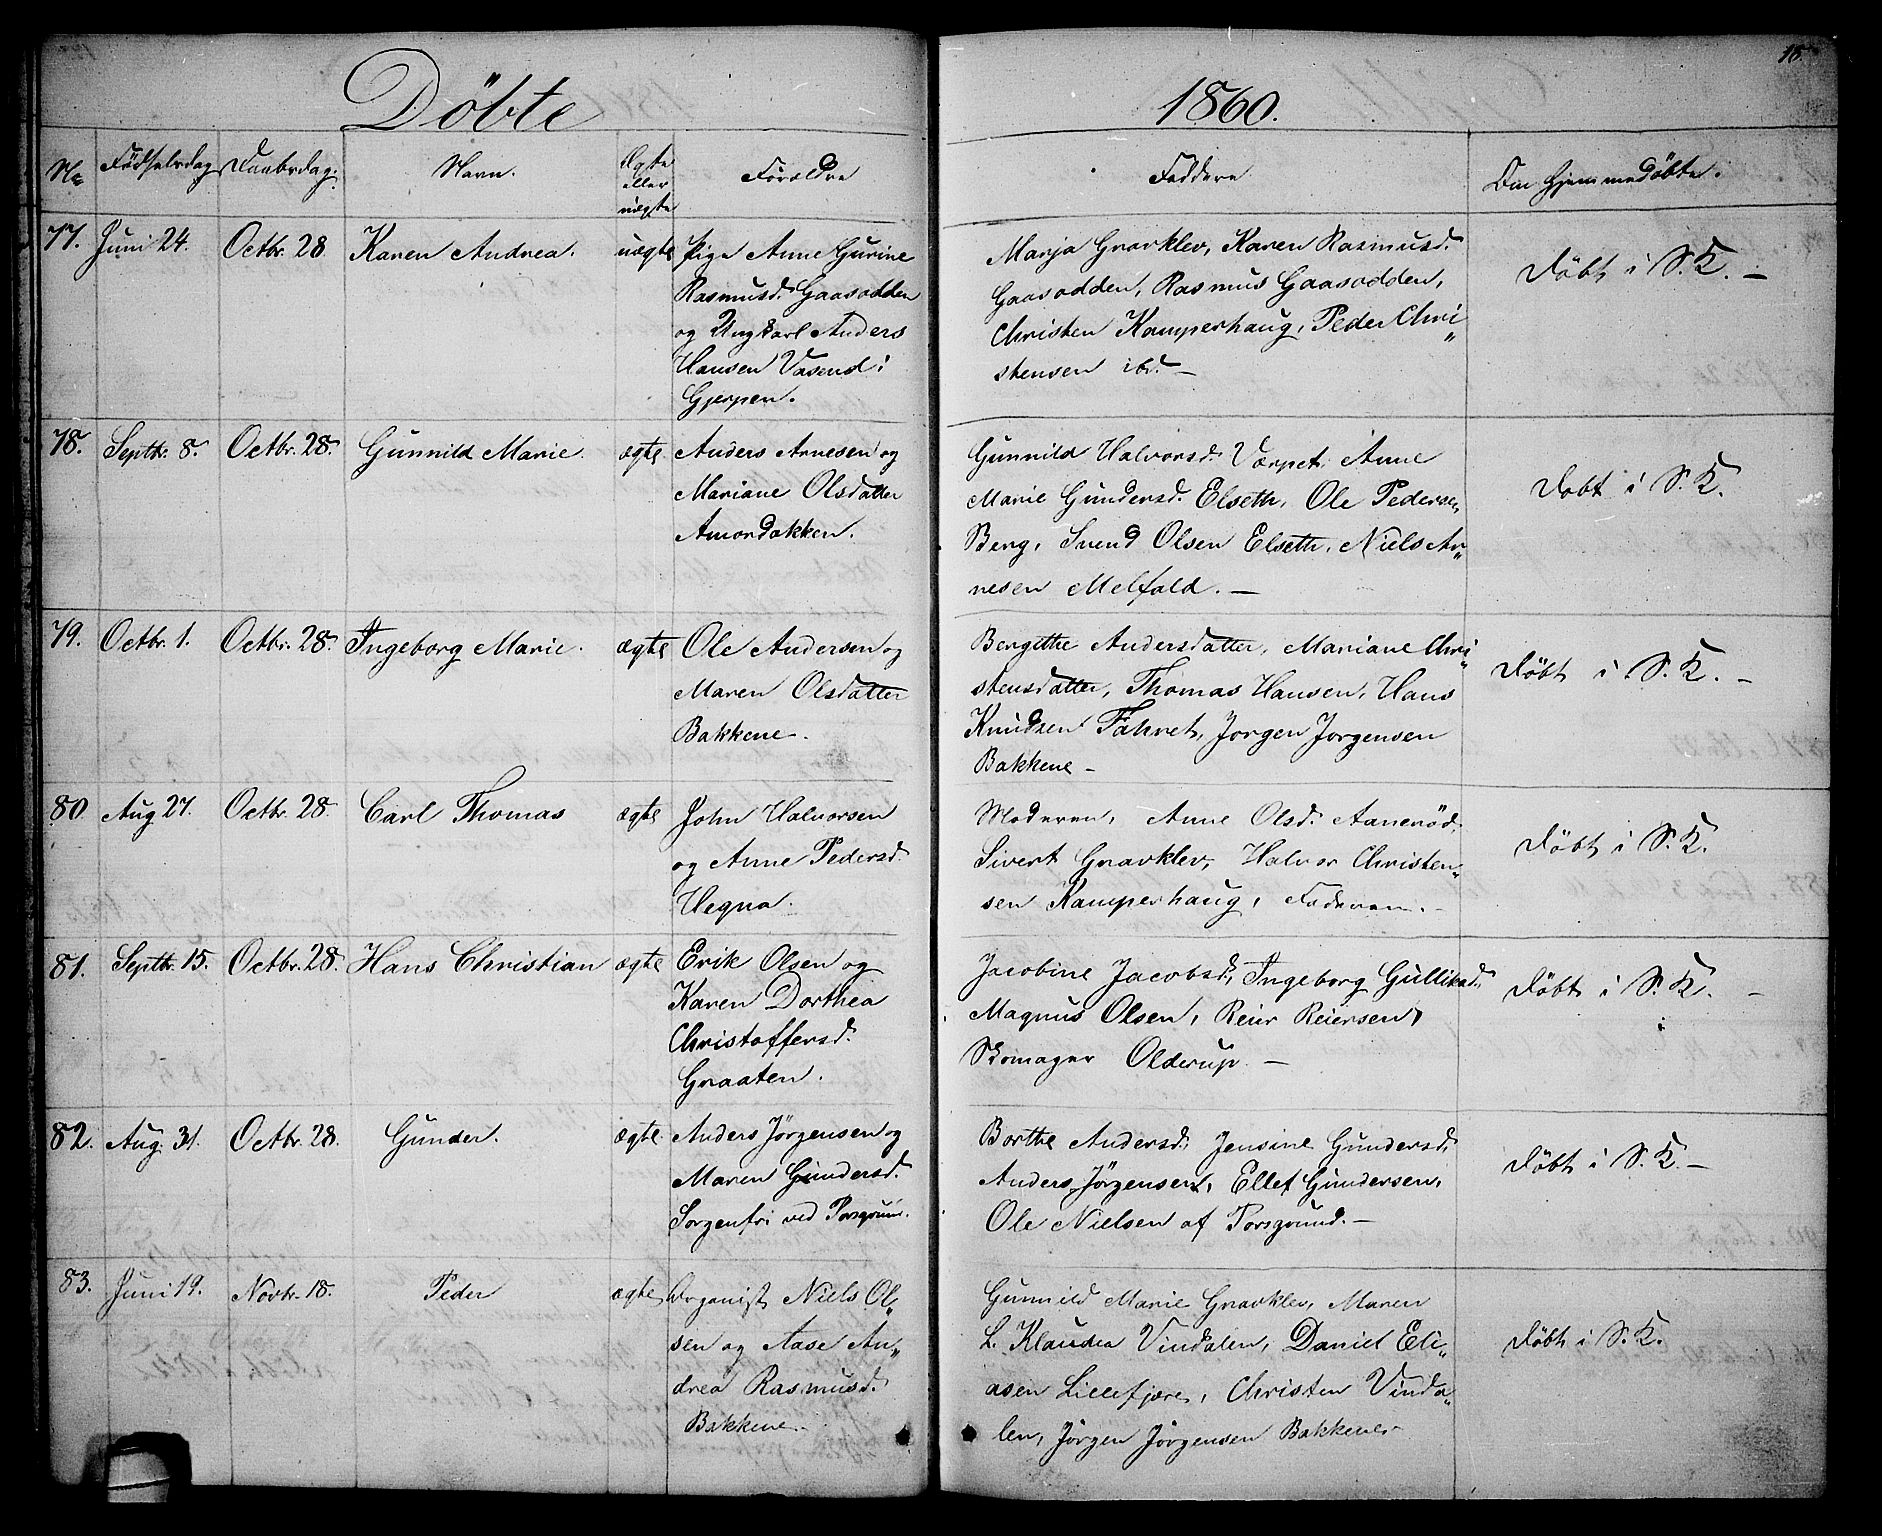 18.
Döbte
1860.
No
Fødselsdag
Daabsdag.
Navn.
Ægte
eller
uægte
Forældre
Faddere
Om hjemmedöbte.
77.
Juni 24.
Octbr. 28
Karen Andrea.
uægte
Pige Anne Gurine
Rasmusd. Gaasodden
og Ungkarl Anders
Hansen Vasend i
Gjerpen.
Marja Gravklev, Karen Rasmusd.
Gaasodden, Rasmus Gaasodden,
Christen Kamperhaug, Peder Chri„
stensen ibd. —
Döbt i S. K. —
78.
Septbr. 8.
Octbr. 28.
Gunnild Marie.
ægte
Anders Arnesen og
Mariane Olsdatter
Amordakken.
Gunnild Halvorsd. Værpet, Anne
Marie Gundersd. Elseth, Ole Pedersen
Berg, Svend Olsen Elseth, Niels Ar„
nesen Melfald. —
Dobt i S. K.
79.
Octbr. 1.
Octbr. 28.
Ingeborg Marie.
ægte
Ole Andersen og
Maren Olsdatter
Bakkene.
Bergithe Andersdatter, Mariane Chri„
stensdatter, Thomas Hansen, Hans
Knudsen Fahret, Jorgen Jorgensen
Bakkene —
Döbt i S. K. —
80.
Aug 27.
Octbr. 28.
Carl Thomas
ægte
John Halvorsen
og Anne Pedersd.
Hegna.
Moderen, Anne Olsd. Aanerød,
Sivert Gravklev, Halvor Christen„
sen Kamperhaug, Faderen. —
Döbt i S. K.
81.
Septbr. 15.
Octbr. 28.
Hans Christian
ægte
Erik Olsen og
Karen Dorthea
Christoffersd.
Graaten.
Jacobine Jacobsd., Ingeborg Gulliksd.,
Magnus Olsen, Reier Reiersen,
Skomager Olderup. —
Döbt i S. K. —
82.
Aug. 31.
Octbr. 28.
Gunder.
ægte
Anders Jörgensen og
Maren Gundersd.
Sorgenfri ved Porsgrund.
Borthe Andersd., Jensine Gundersd.,
Anders Jörgensen, Ellef Gundersen,
Ole Nielsen af Porsgrund. —
Döbt i S. K. —
83.
Juni 19.
Novbr. 18.
Peder
ægte
Organist Niels Ol„
sen og Aase An„
drea Rasmusd.
Bakkene.
Gunnild Marie Gravklev, Maren
L. Klaudia Vindalen, Daniel Eli„
asen Lillefjære, Christen Vinda„
len, Jörgen Jörgensen Bakkene. —
Döbt i S. K.